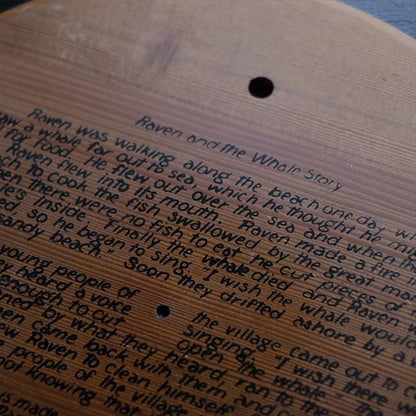 Raven and the Whale Story
Raven was walking along the beach one day
a whale far out to sea, which he thought he
for food. He flew out over the sea and when
Raven flew into its mouth. Raven made a fire
to cook the fish swallowed by the great
there were no fish to eat, he cut pieces of
inside. Finally the whale died and Raven
so he began to sing, "I wish the whale would
sandy beach." Soon they drifted ashore by a
young people of the village came out to
heard a voice singing, "I wish there
enough to cut open the whale"
by what they heard, ran to
came back with them and
Raven to clean himself
people of the village
knowing that
made